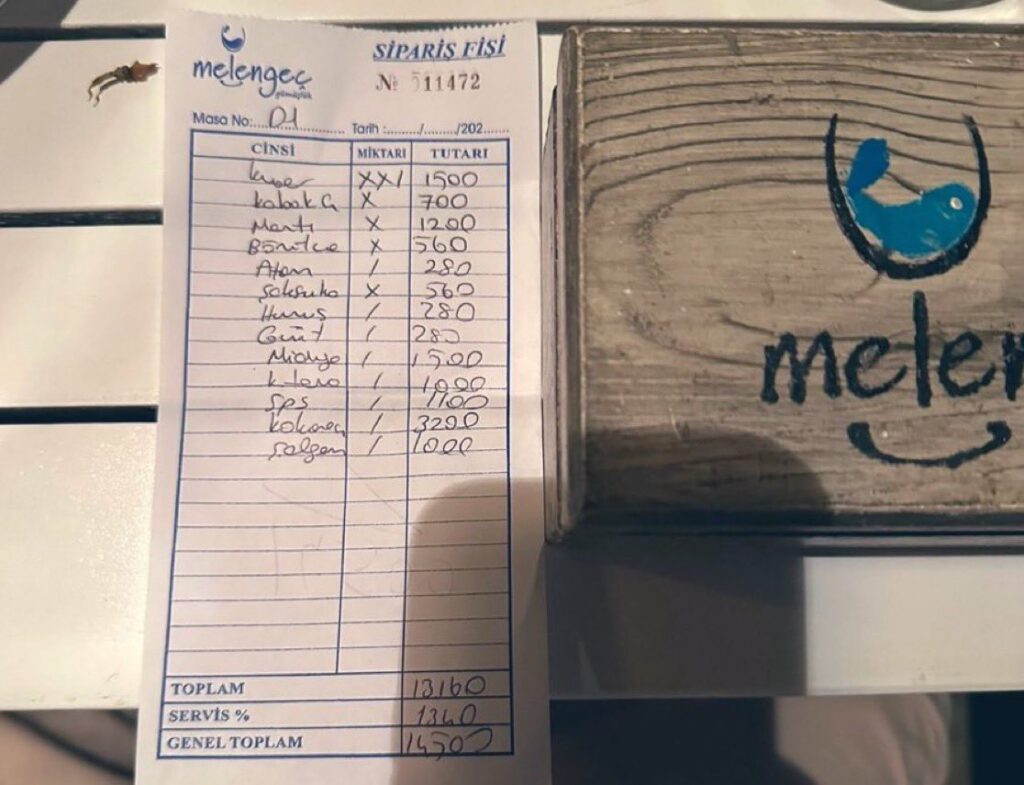 melengeç
gümüşlük
SİPARİŞ FİŞİ
№ 511472
Masa No:.....D1..................
Tarih :........./........./202.......
CİNSİ MİKTARI TUTARI
kuver XX/ 1500
kabak Ç X 700
Mantı X 1200
Börülce X 560
Atom / 280
şakşuka X 560
Humus / 280
Girit / 280
Midye / 1500
k. tava / 1000
sps / 1100
kokoreç / 3200
şalgam / 1000
TOPLAM 13160
SERVİS % 1340
GENEL TOPLAM 14500
melen